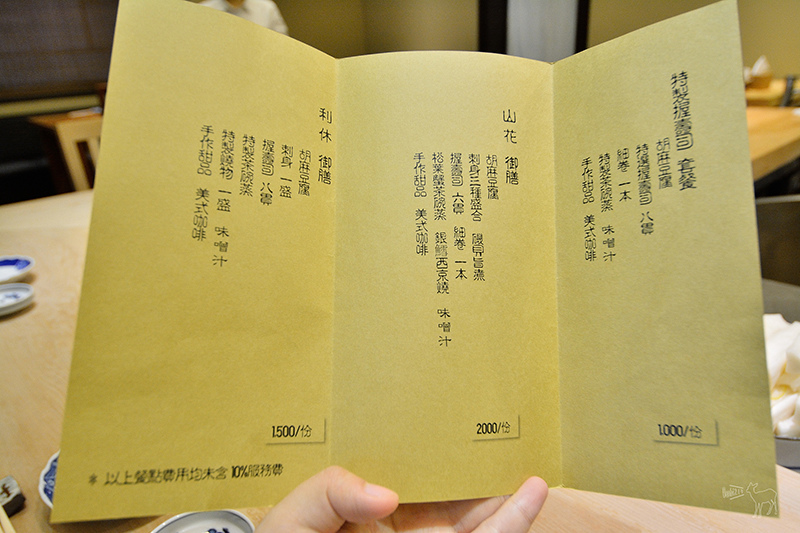 特製名握壽司 套餐
胡麻豆腐
特選握壽司 八貫
細卷 一本
特製茶碗蒸 味噌汁
手作甜品 美式咖啡
1.000/份
山花 御膳
胡麻豆腐
刺身三種盛合 鮑貝旨煮
握壽司 六貫 細卷 一本
松葉蟹茶碗蒸 銀鱈西京燒 味噌汁
手作甜品 美式咖啡
2000/份
利休 御膳
胡麻豆腐
刺身 一盛
握壽司 八貫
特製茶碗蒸
特製燒物 一盛 味噌汁
手作甜品 美式咖啡
1.500/份
※ 以上餐點費用均未含 10%服務費